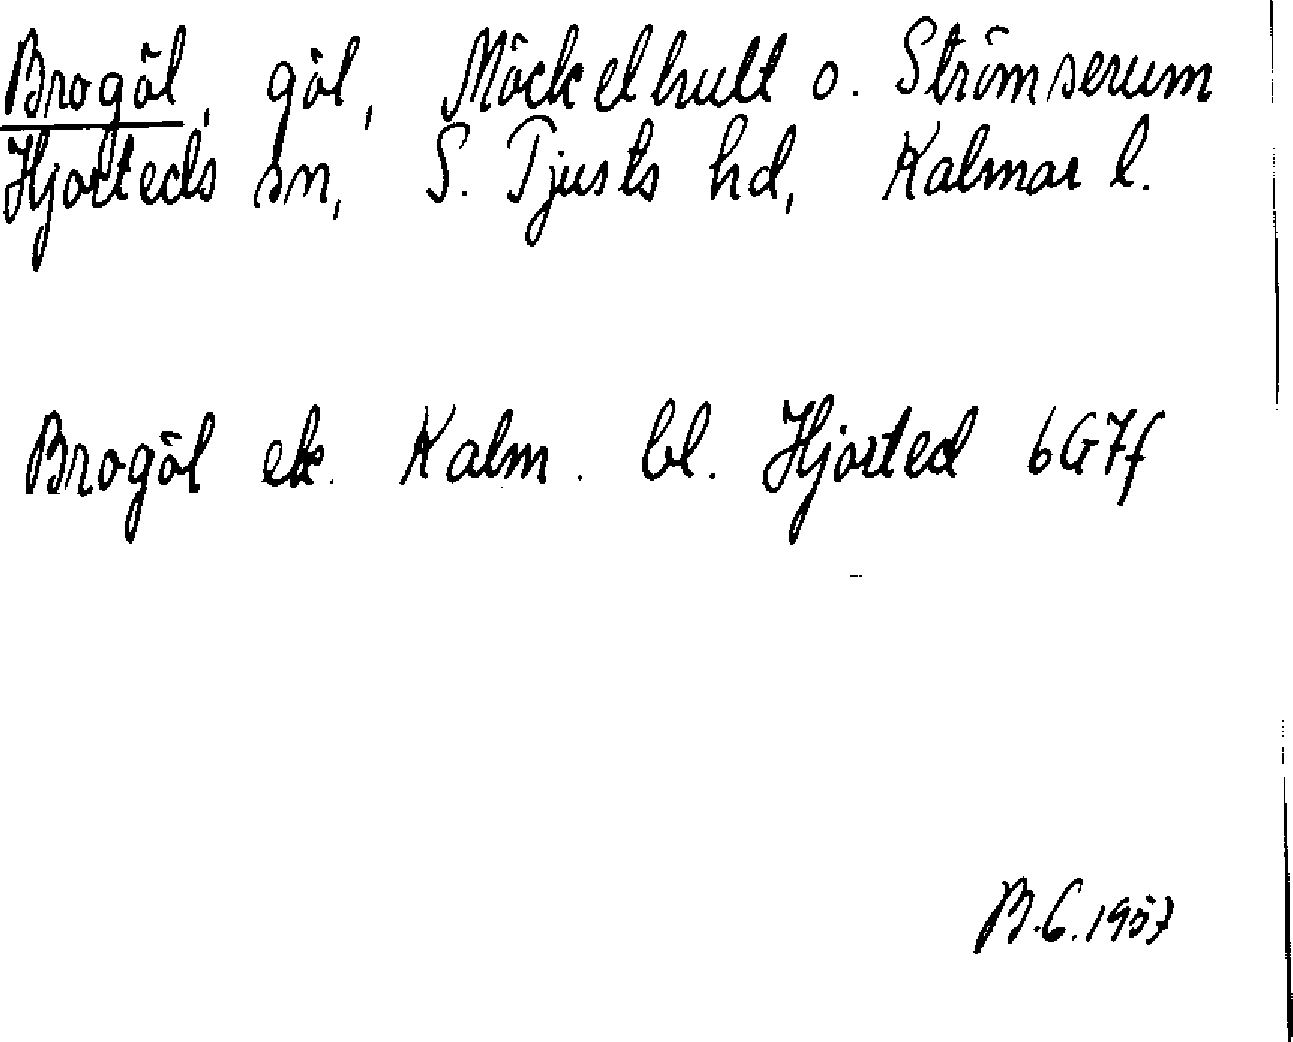 Brogöl, göl, Möckelhult o. Strömserum
Hjorteds sn, S. Tjusts hd, Kalmar l.
Brogöl ek. Kalm. bl. Hjorted 6G7f
B.G.1957